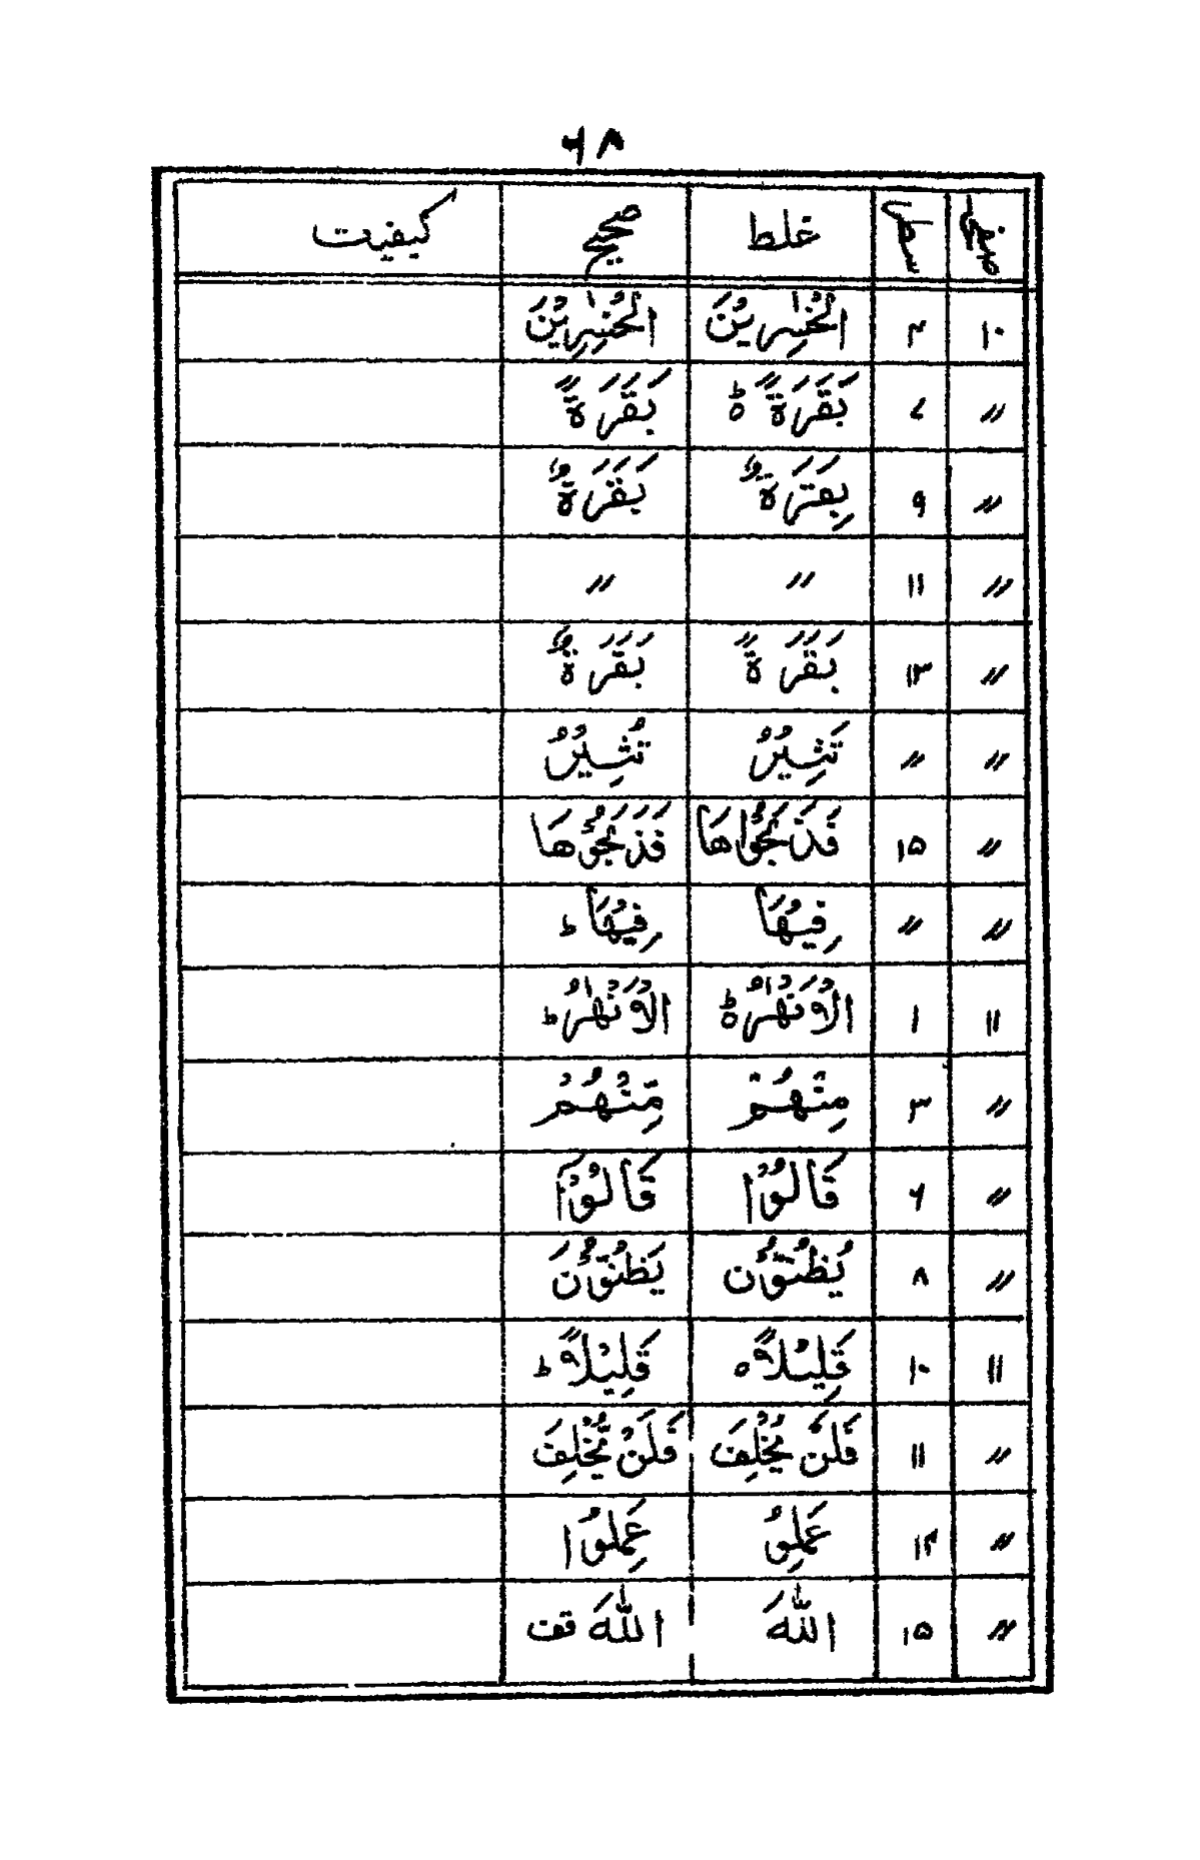 ۶۸
صفحہ سطر غلط صحیح کیفیت
۱۰ ۴ الْخٰسِرِيْنَ الْخٰسِرِيْنَ
〃 ۷ بَقَرَةً ؕ بَقَرَةً
〃 ۹ بِقَرَةٌ بَقَرَةٌ
〃 ۱۱ 〃 〃
〃 ۱۳ بَقَرَةً بَقَرَةٌ
〃 〃 تَثِيْرُ تُثِيْرُ
〃 ۱۵ فَذَبَحُوْاهَا فَذَبَحُوْهَا
〃 〃 فِيْهَا فِيْهَا ؕ
۱۱ ۱ الْاَنْهٰرُ ؕ الْاَنْهٰرُ ؕ
〃 ۳ مِنْهُمْ مِّنْهُمْ
〃 ۶ قَالُوْا قَالُوْۤا
〃 ۸ يُظُنُّوْن يَظُنُّوْنَ
۱۱ ۱۰ قَلِيْلًا ہ قَلِيْلًا ؕ
〃 ۱۱ فَلَنَّ يُخْلِفَ فَلَنْ يُّخْلِفَ
〃 ۱۴ عَمِلُو عَمِلُوا
〃 ۱۵ اللّٰهَ اللّٰهَ قف